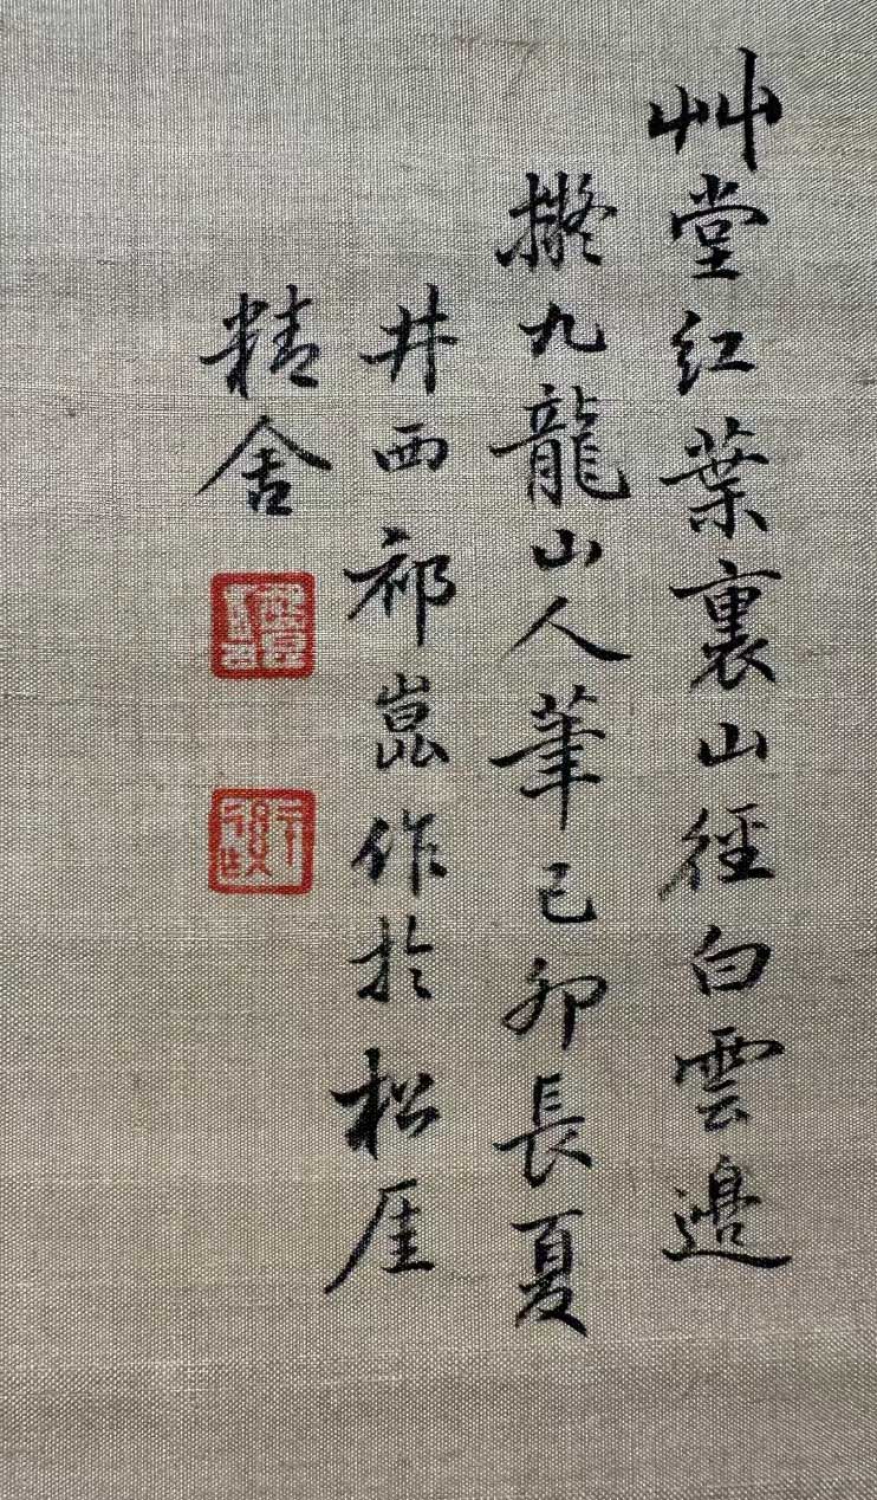 艸堂红葉裏山徑白雲邊
擬九龍山人筆己卯長夏
井西祁崑作於松厓
精舍